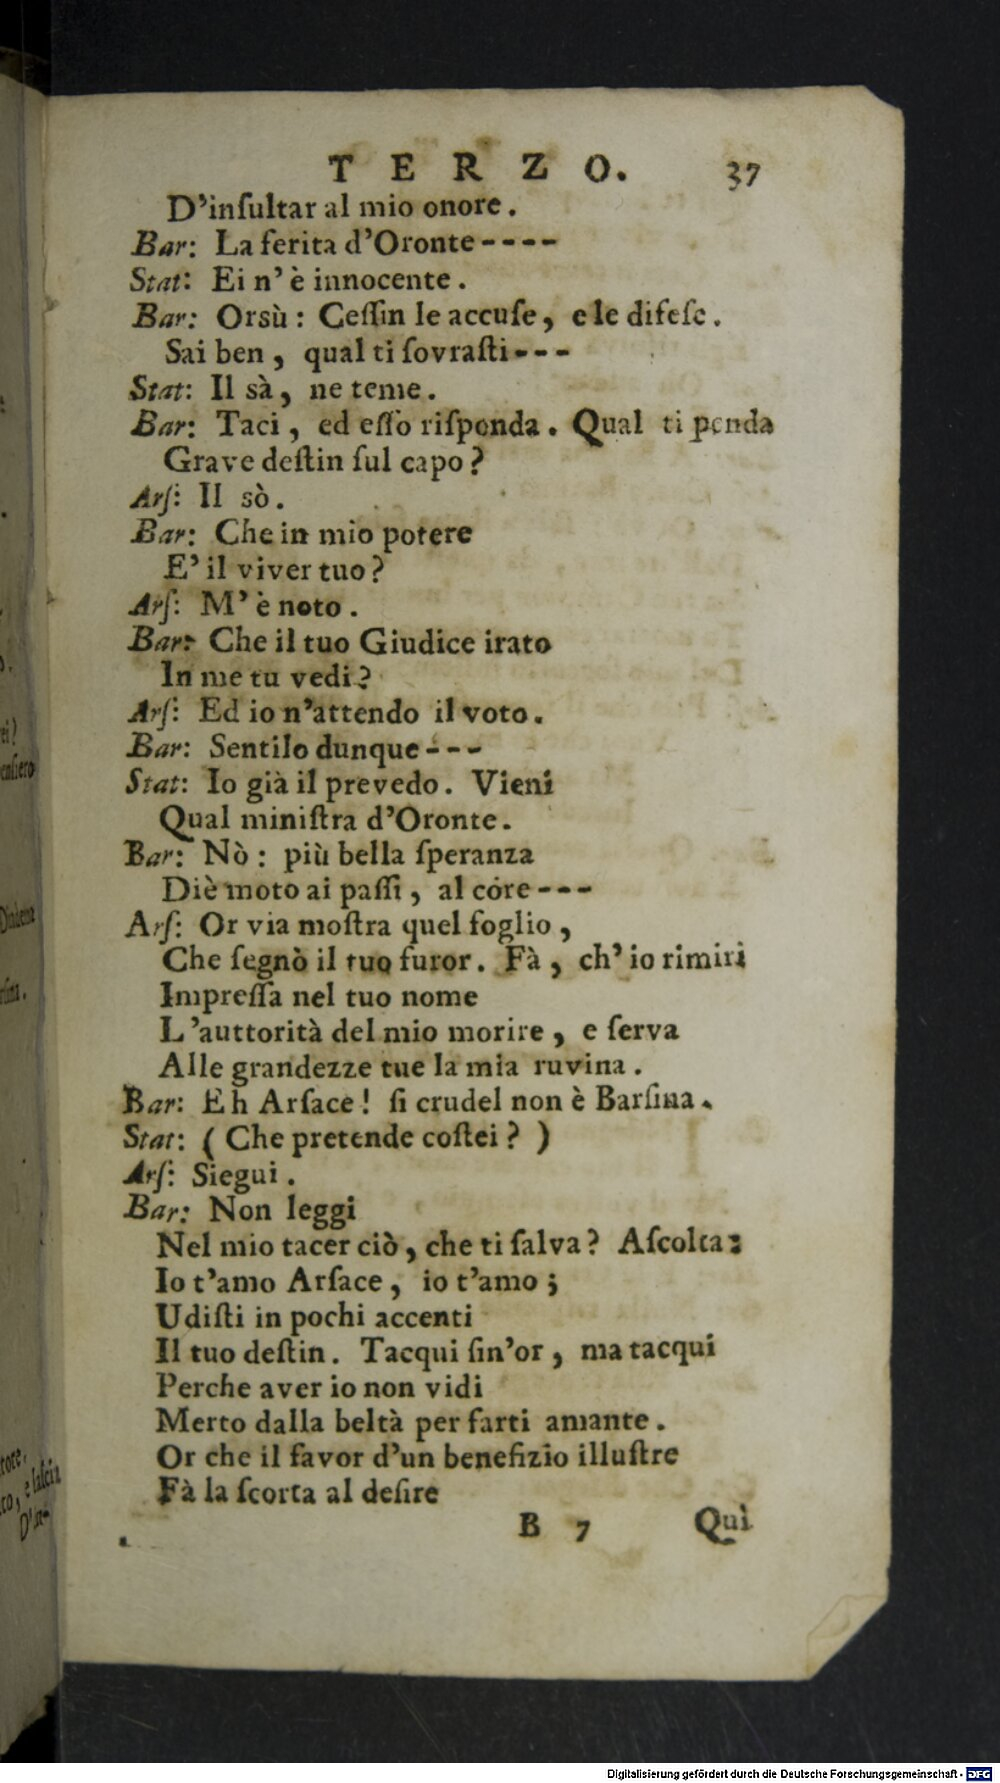 TERZO. 37
D'inſultar al mio onore.
Bar: La ferita d'Oronte----
Stat: Ei n' è innocente.
Bar: Orsù: Ceſſin le accuſe, e le difeſe.
Sai ben, qual ti ſovraſti---
Stat: Il sà, ne teme.
Bar: Taci, ed eſſo riſponda. Qual ti penda
Grave deſtin ſul capo?
Arſ: Il sò.
Bar: Che in mio potere
E' il viver tuo?
Arſ: M' è noto.
Bar: Che il tuo Giudice irato
In me tu vedi?
Arſ: Ed io n'attendo il voto.
Bar: Sentilo dunque---
Stat: Io già il prevedo. Vieni
Qual miniſtra d'Oronte.
Bar: Nò: più bella ſperanza
Diè moto ai paſſi, al córe---
Arſ: Or via moſtra quel foglio,
Che ſegnò il tuo furor. Fà, ch' io rimiri
Impreſſa nel tuo nome
L'auttorità del mio morire, e ſerva
Alle grandezze tue la mia ruvina.
Bar: Eh Arſace! ſi crudel non è Barſina.
Stat: (Che pretende coſtei?)
Arſ: Siegui.
Bar: Non leggi
Nel mio tacer ciò, che ti ſalva? Aſcolta:
Io t'amo Arſace, io t'amo;
Udiſti in pochi accenti
Il tuo deſtin. Tacqui ſin'or, ma tacqui
Perche aver io non vidi
Merto dalla beltà per farti amante.
Or che il favor d'un benefizio illuſtre
Fà la ſcorta al deſire
B 7 Quì
Digitalisierung gefördert durch die Deutsche Forschungsgemeinschaft - DFG